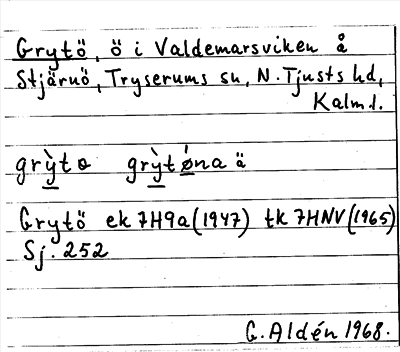 Grytö, ö i Valdemarsviken å
Stjärnö, Tryserums sn, N. Tjusts hd,
Kalm l.
grỳtɷ grỳtǿna ä
Grytö ek 7H9a (1947) tk 7HNV (1965)
Sj. 252
G. Aldén 1968.